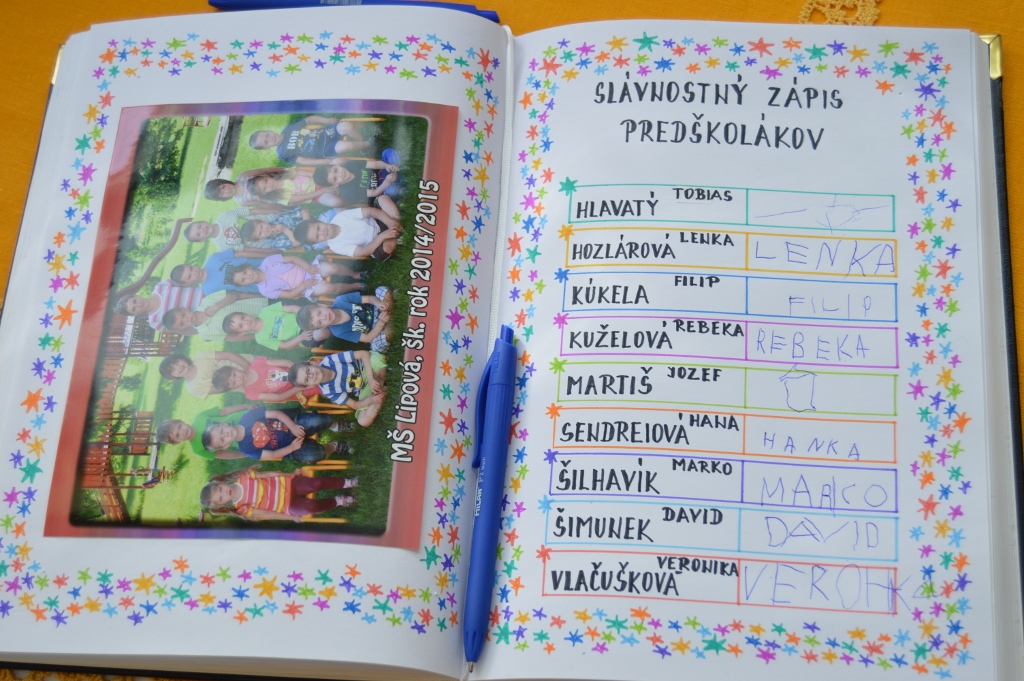 MŠ Lipová, šk. rok 2014/2015
SLÁVNOSTNÝ ZÁPIS
PREDŠKOLÁKOV
HLAVATÝ TOBIAS
HOZLÁROVÁ LENKA LENKA
KÚKELA FILIP FILIP
KUŽELOVÁ REBEKA REBEKA
MARTIŠ JOZEF
SENDREIOVÁ HANA HANKA
ŠILHAVÍK MARKO MARCO
ŠIMUNEK DAVID DAVID
VLAČUŠKOVÁ VERONIKA
MILAN P1